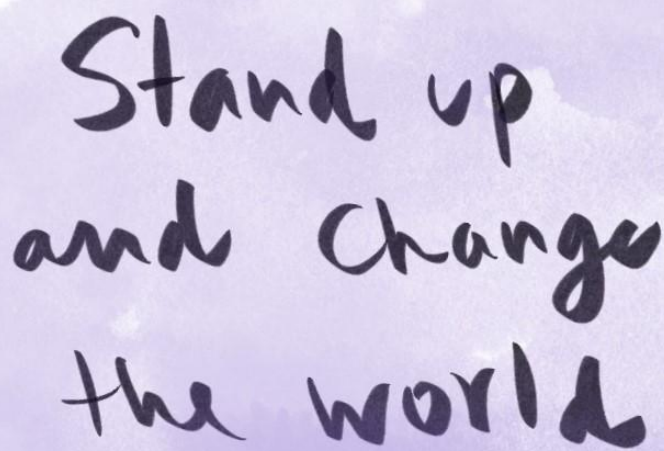 Stand up
and Change
the world